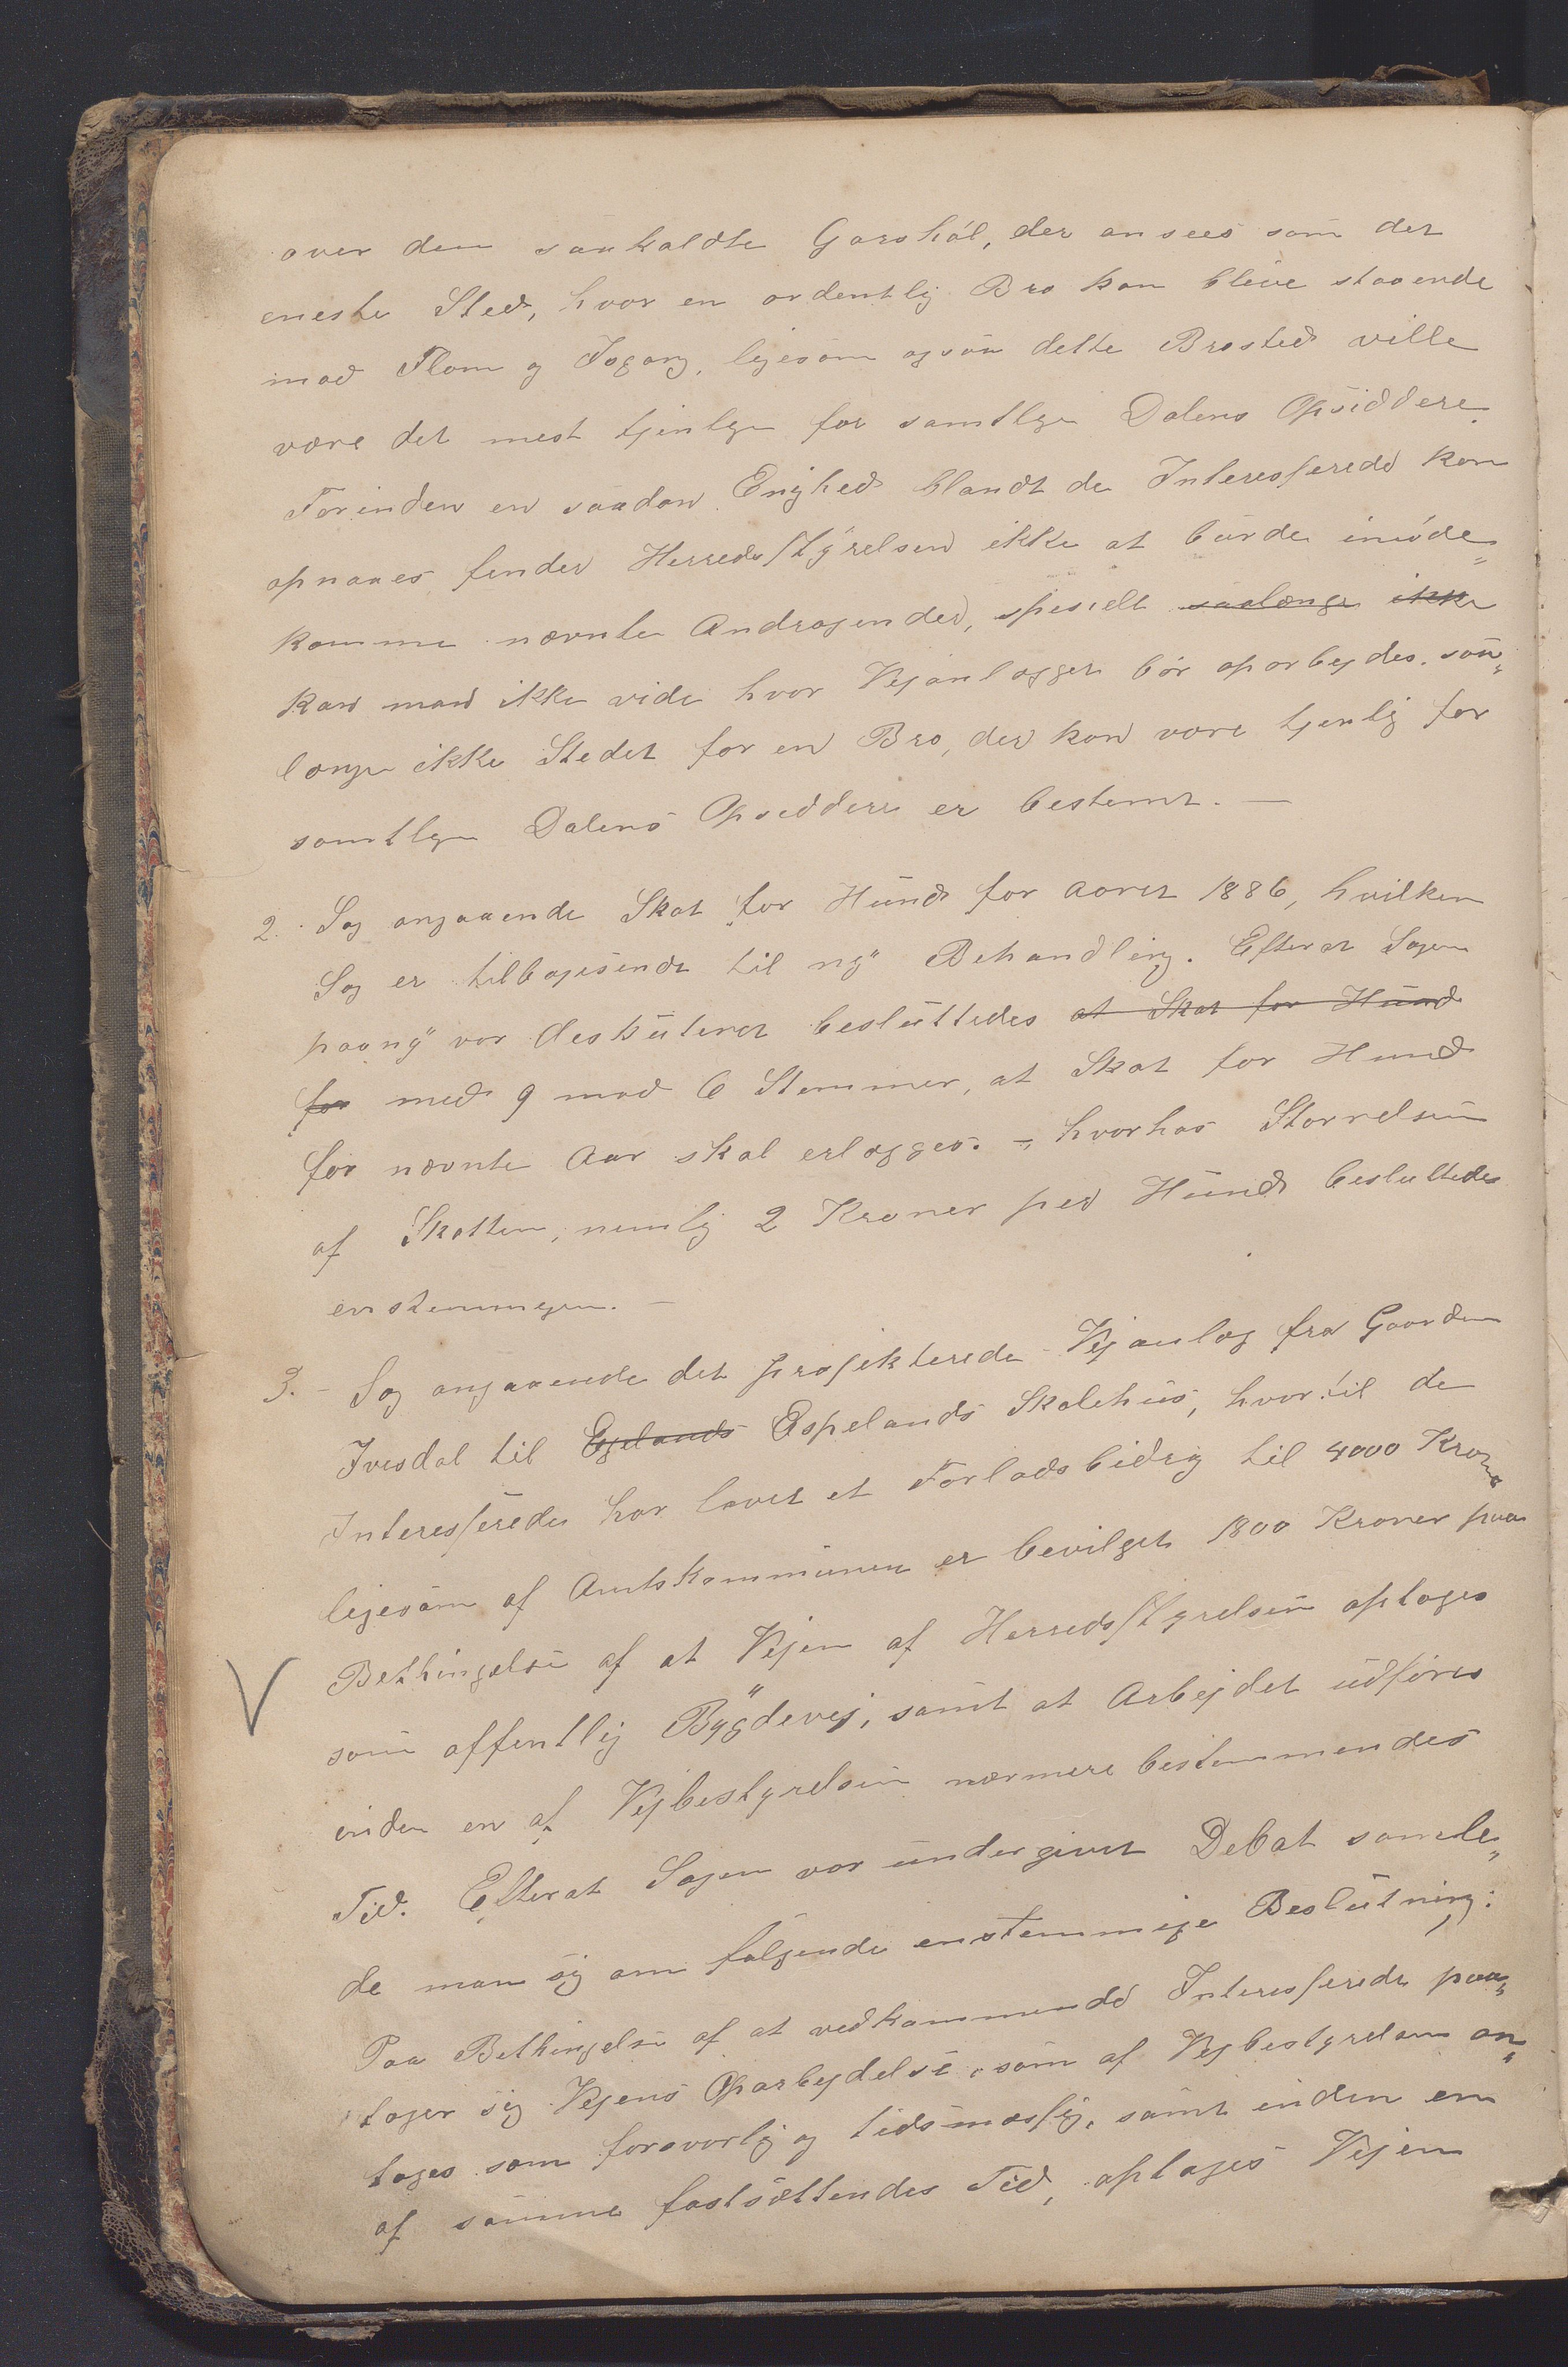 over den saakaldte Garshöl, der ansees som det
eneste Sted, hvor en ordentlig Bro kan blive staaende
mod Flom og Isgang, ligesom ogsaa dette Brosted ville
være det mest tjenlige for samtlige Dalens Opsiddere.
Forinden en saadan Enighed blandt de Interesserede kan
opnaaes finder Herredsstyrelsen ikke at burde imöde„
komme nævnte Andragender, specielt saalænge ikke
kan man ikke vide hvor Vejanlægget bör oparbejdes, saa„
længe ikke Stedet for en Bro, der kan være tjenlig for
samtlige Dalens Opsiddere er bestemt. —
2. Sag angaaende Skat for Hund for Aaret 1886, hvilken
Sag er tilbagesendt til ny Behandling. Efterat Sagen
paany var diskuteret besluttedes at Skat for Hund
for med 9 mod 6 Stemmer, at Skat for Hund
for nævnte Aar skal erlægges. – hvorhos Störrelsen
af Skatten, nemlig 2 Kroner per Hund besluttedes
enstemmigen. —
3. – Sag angaaende det projekterede Vejanlæg fra Gaarden
Ivesdal til Egelands Espelands Skolehus, hvortil de
Interesserede har lovet et Forladsbidrag til 4000 Kroner
ligesom af Amtskommunen er bevilget 1800 Kroner paa
Bethingelse af at Vejen af Herredsstyrelsen optages
som offentlig Bygdevej, samt at Arbejdet udföres
inden en af Vejbestyrelsen nærmere bestemmendes
Tid. Efterat Sagen var undergivet Debat samle„
de man sig om fölgende enstemmige Beslutning:
Paa Bethingelse af at vedkommende Interesserede paa„
tager sig Vejens Oparbejdelse, som af Vejbestyrelsen an„
tages som forsvarlig og tidsmæssig, samt inden en
af samme fastsættendes Tid, optages Vejen